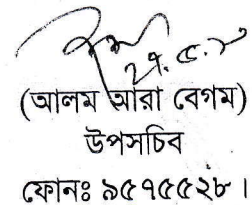 ২৭.৫.২
(আলম আরা বেগম)
উপসচিব
ফোনঃ ৯৫৭৫৫২৮।